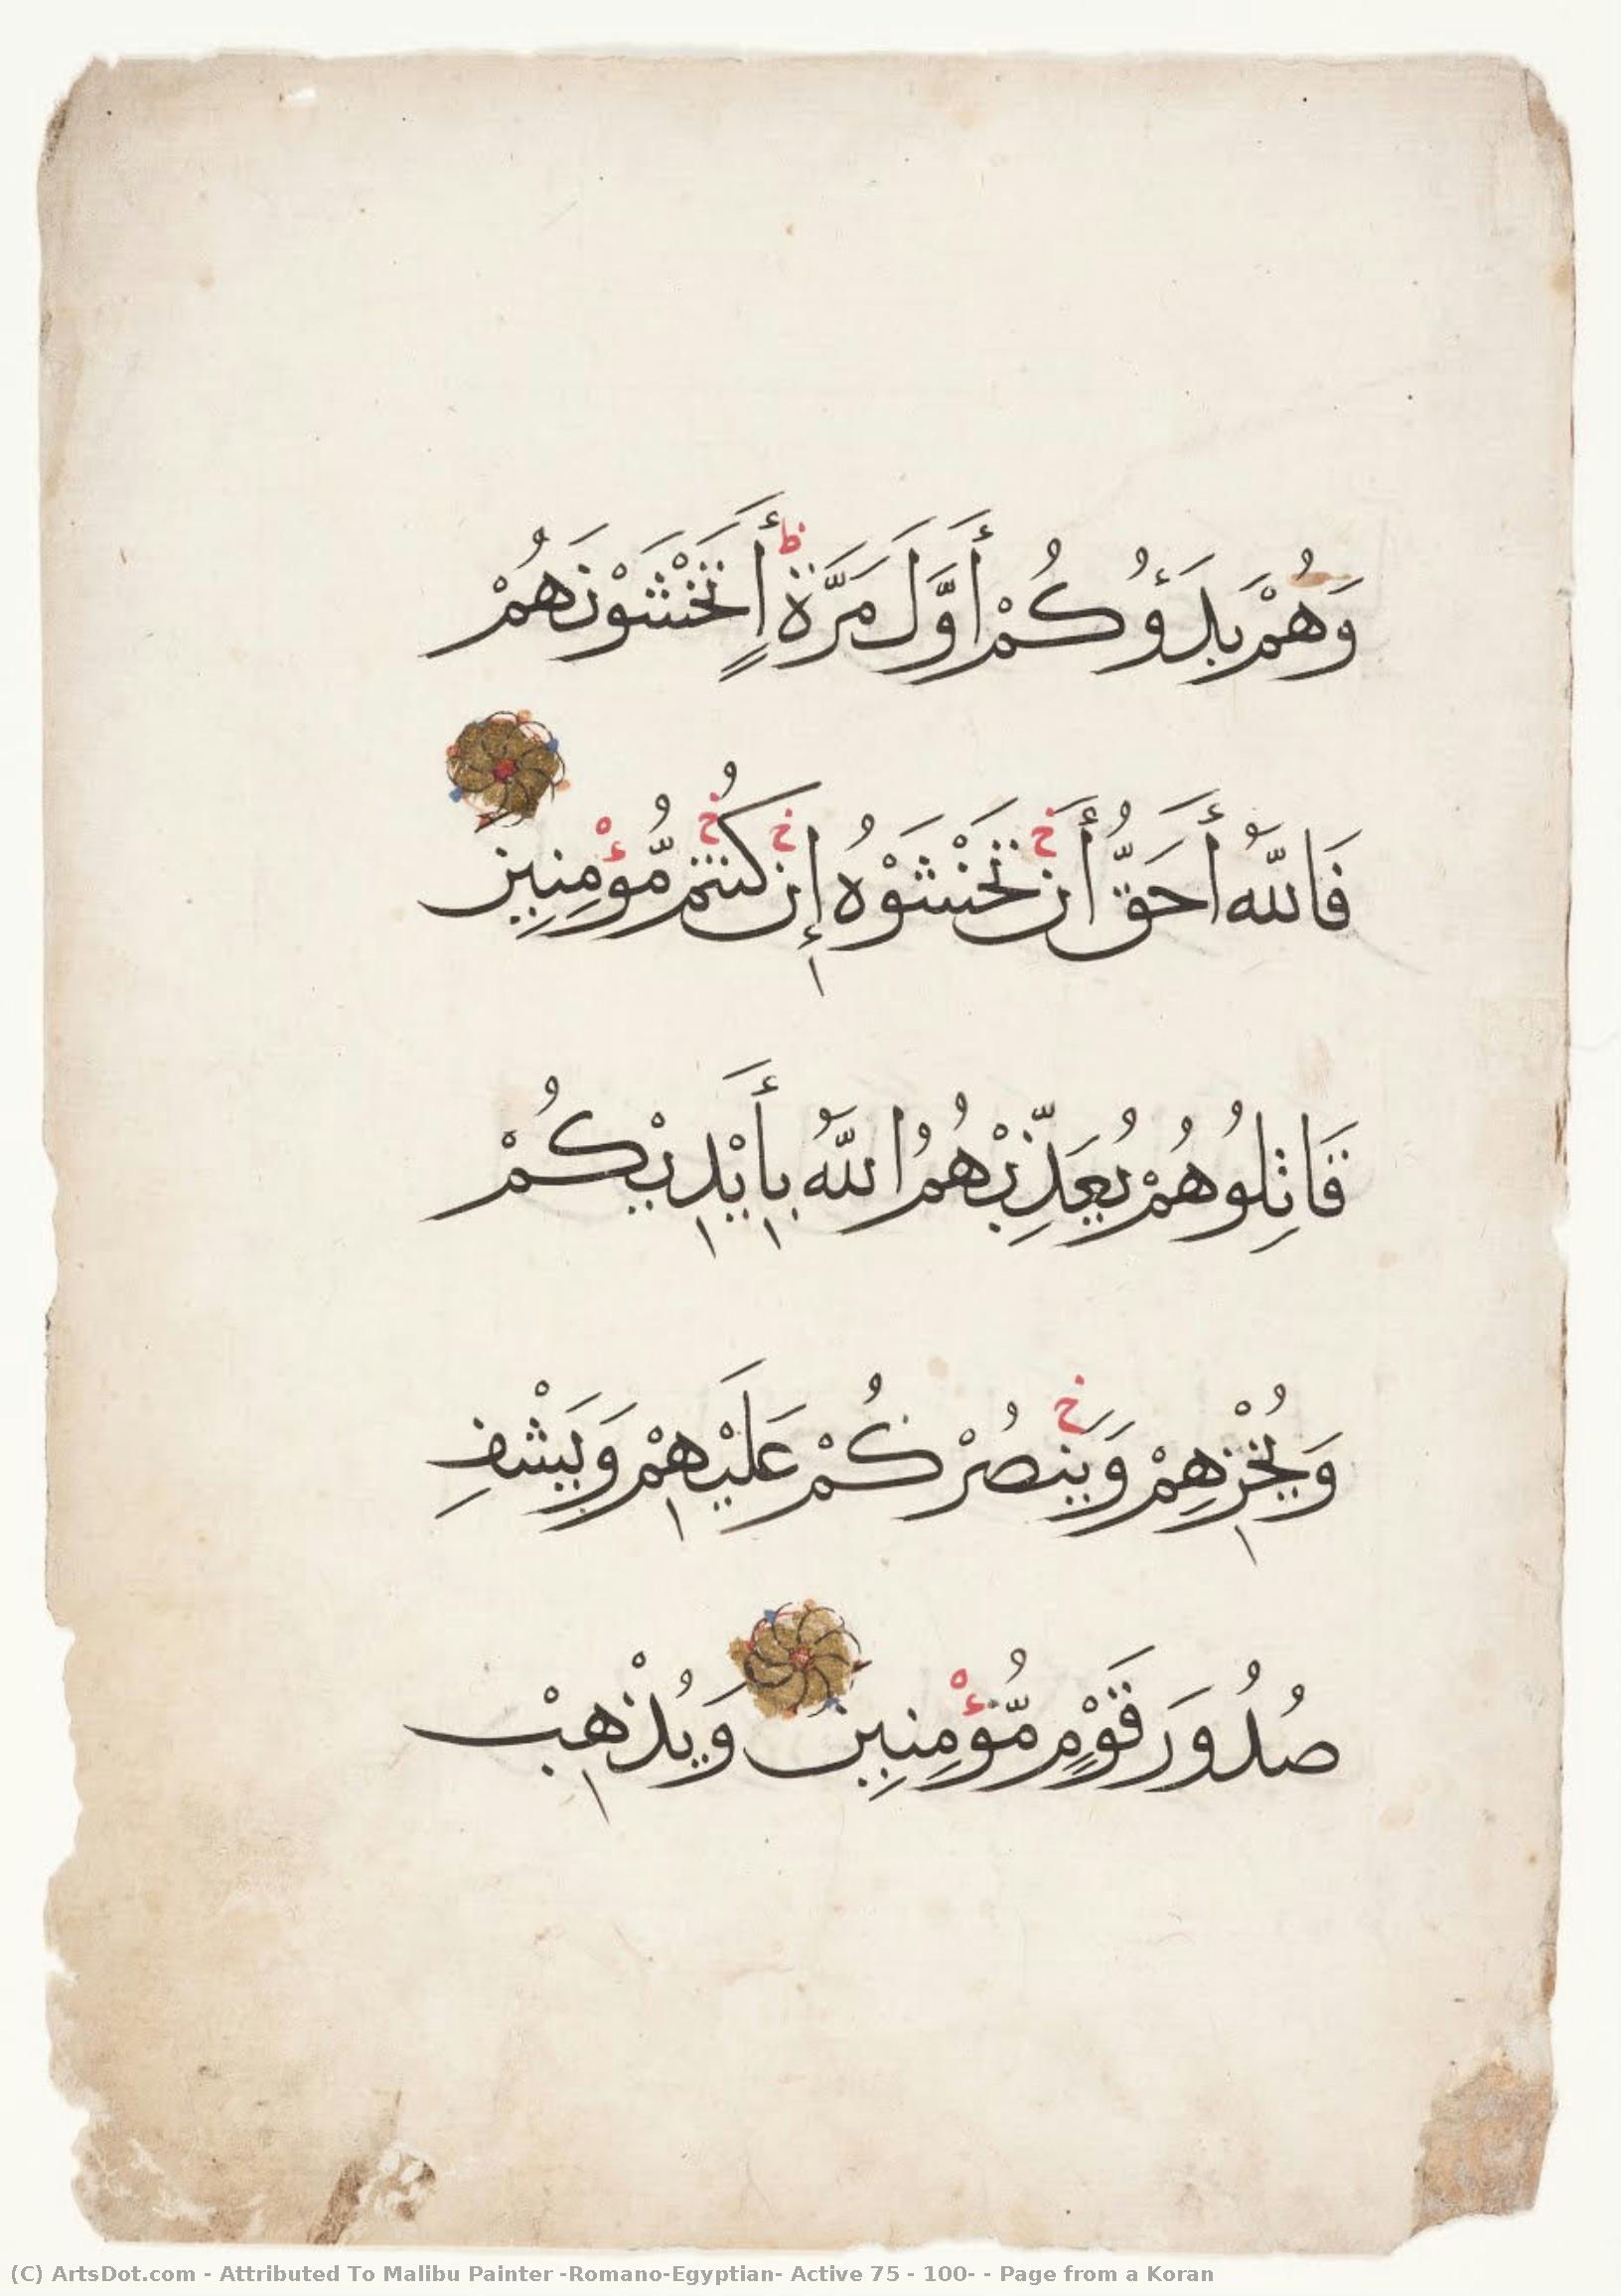 وَهُمْ بَدَءُوكُمْ أَوَّلَ مَرَّةٍ أَتَخْشَوْنَهُمْ
فَاللَّهُ أَحَقُّ أَنْ تَخْشَوْهُ إِنْ كُنْتُمْ مُّؤْمِنِينَ
قَاتِلُوهُمْ يُعَذِّبْهُمُ اللَّهُ بِأَيْدِيْكُمْ
وَيُخْزِهِمْ وَيَنصُرْكُمْ عَلَيْهِمْ وَيَشْفِ
صُدُورَ قَوْمٍ مُّؤْمِنِينَ وَيُذْهِبْ
(C) ArtsDot.com - Attributed To Malibu Painter -Romano-Egyptian- Active 75 - 100- - Page from a Koran